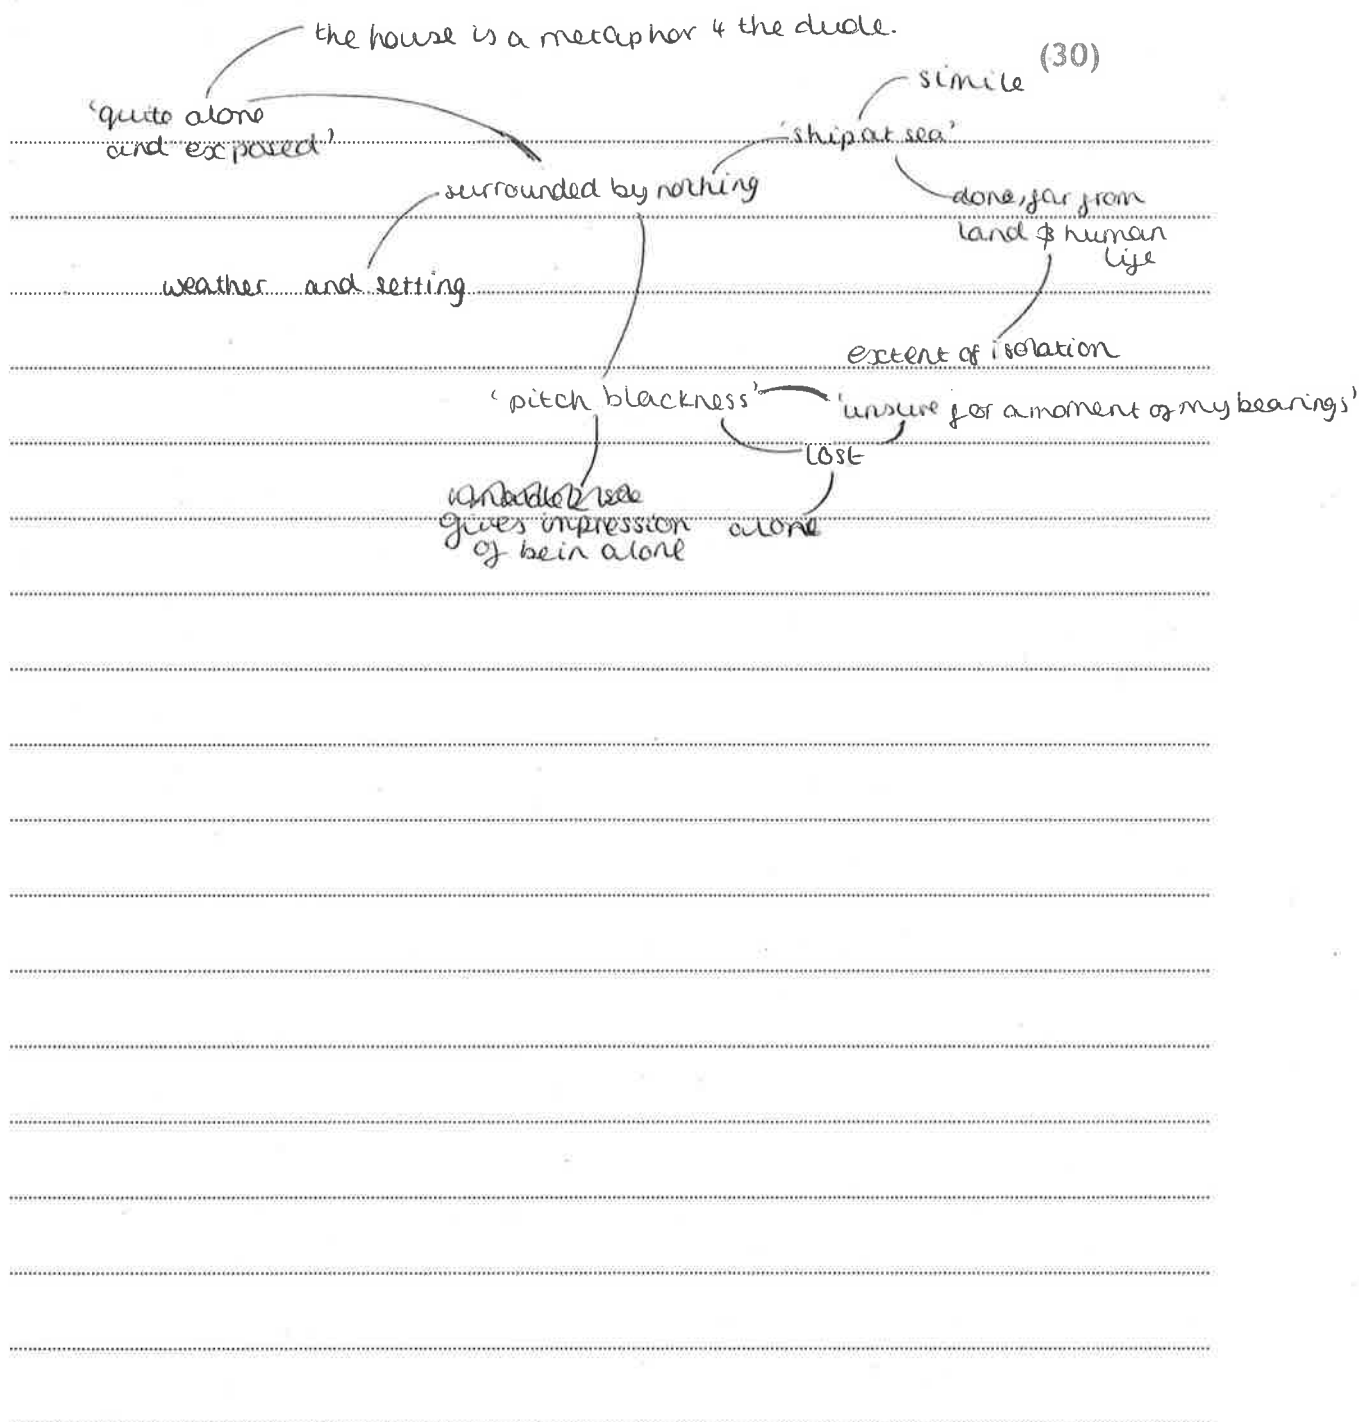 the house is a metaphor 4 the dude.
(30)
simile
'quite alone
and exposed'
'ship at sea'
surrounded by nothing
alone, far from
land & human
life
weather and setting
extent of isolation
'pitch blackness'
'unsure for a moment of my bearings'
lost
gives impression
of bein alone
alone